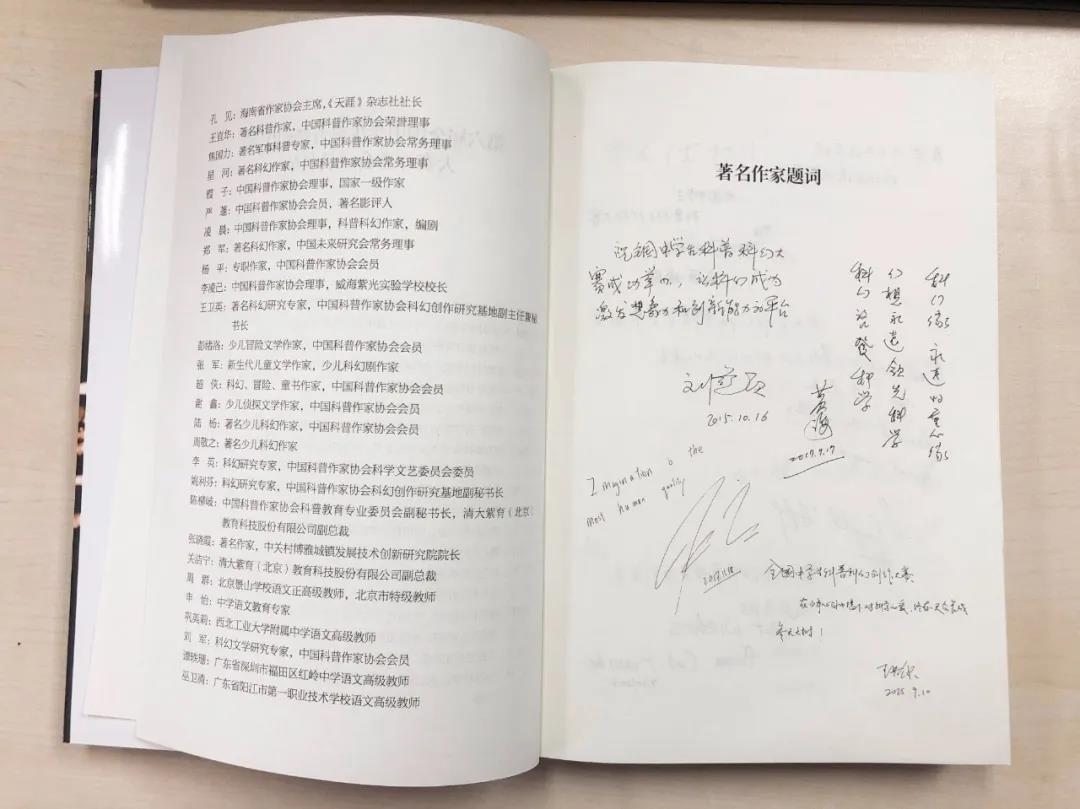 孔　见：海南省作家协会主席，《天涯》杂志社社长
王直华：著名科普作家，中国科普作家协会荣誉理事
焦国力：著名军事科普专家，中国科普作家协会常务理事
星　河：著名科幻作家，中国科普作家协会常务理事
霞　子：中国科普作家协会理事，国家一级作家
严　蓬：中国科普作家协会会员，著名影评人
凌　晨：中国科普作家协会理事，科普科幻作家，编剧
郑　军：著名科幻作家，中国未来研究会常务理事
杨　平：专职作家，中国科普作家协会会员
李凌己：中国科普作家协会理事，威海紫光实验学校校长
王卫英：著名科幻研究专家，中国科普作家协会科幻创作研究基地副主任兼秘
书长
彭绪洛：少儿冒险文学作家，中国科普作家协会会员
张　军：新生代儿童文学作家，少儿科幻剧作家
超　侠：科幻、冒险、童书作家，中国科普作家协会会员
谢　鑫：少儿侦探文学作家，中国科普作家协会会员
陆　杨：著名少儿科幻作家，中国科普作家协会会员
周敬之：著名少儿科幻作家
李　英：科幻研究专家，中国科普作家协会科学文艺委员会委员
姚利芬：科幻研究专家，中国科普作家协会科幻创作研究基地副秘书长
陈柳岐：中国科普作家协会科普教育专业委员会副秘书长，清大紫育（北京）
教育科技股份有限公司副总裁
张晓霞：著名作家，中关村博雅城镇发展技术创新研究院院长
关洁宁：清大紫育（北京）教育科技股份有限公司副总裁
周　群：北京景山学校语文正高级教师，北京市特级教师
申　怡：中学语文教育专家
巩英莉：西北工业大学附属中学语文高级教师
刘　军：科幻文学研究专家，中国科普作家协会会员
谭轶珊：广东省深圳市福田区红岭中学语文高级教师
巫卫清：广东省阳江市第一职业技术学校语文高级教师
著名作家题词
祝全国中学生科普科幻大
赛成功举办，让科幻成为
激发想象力和创新能力的平台
刘慈欣
2015.10.16
科幻缘 永远的童心缘
幻想永远领先科学
科幻启发科学
2017.9.17
Imagination is the
most human quality
全国中学生科普科幻创作大赛
参天大树！
2015 9.10